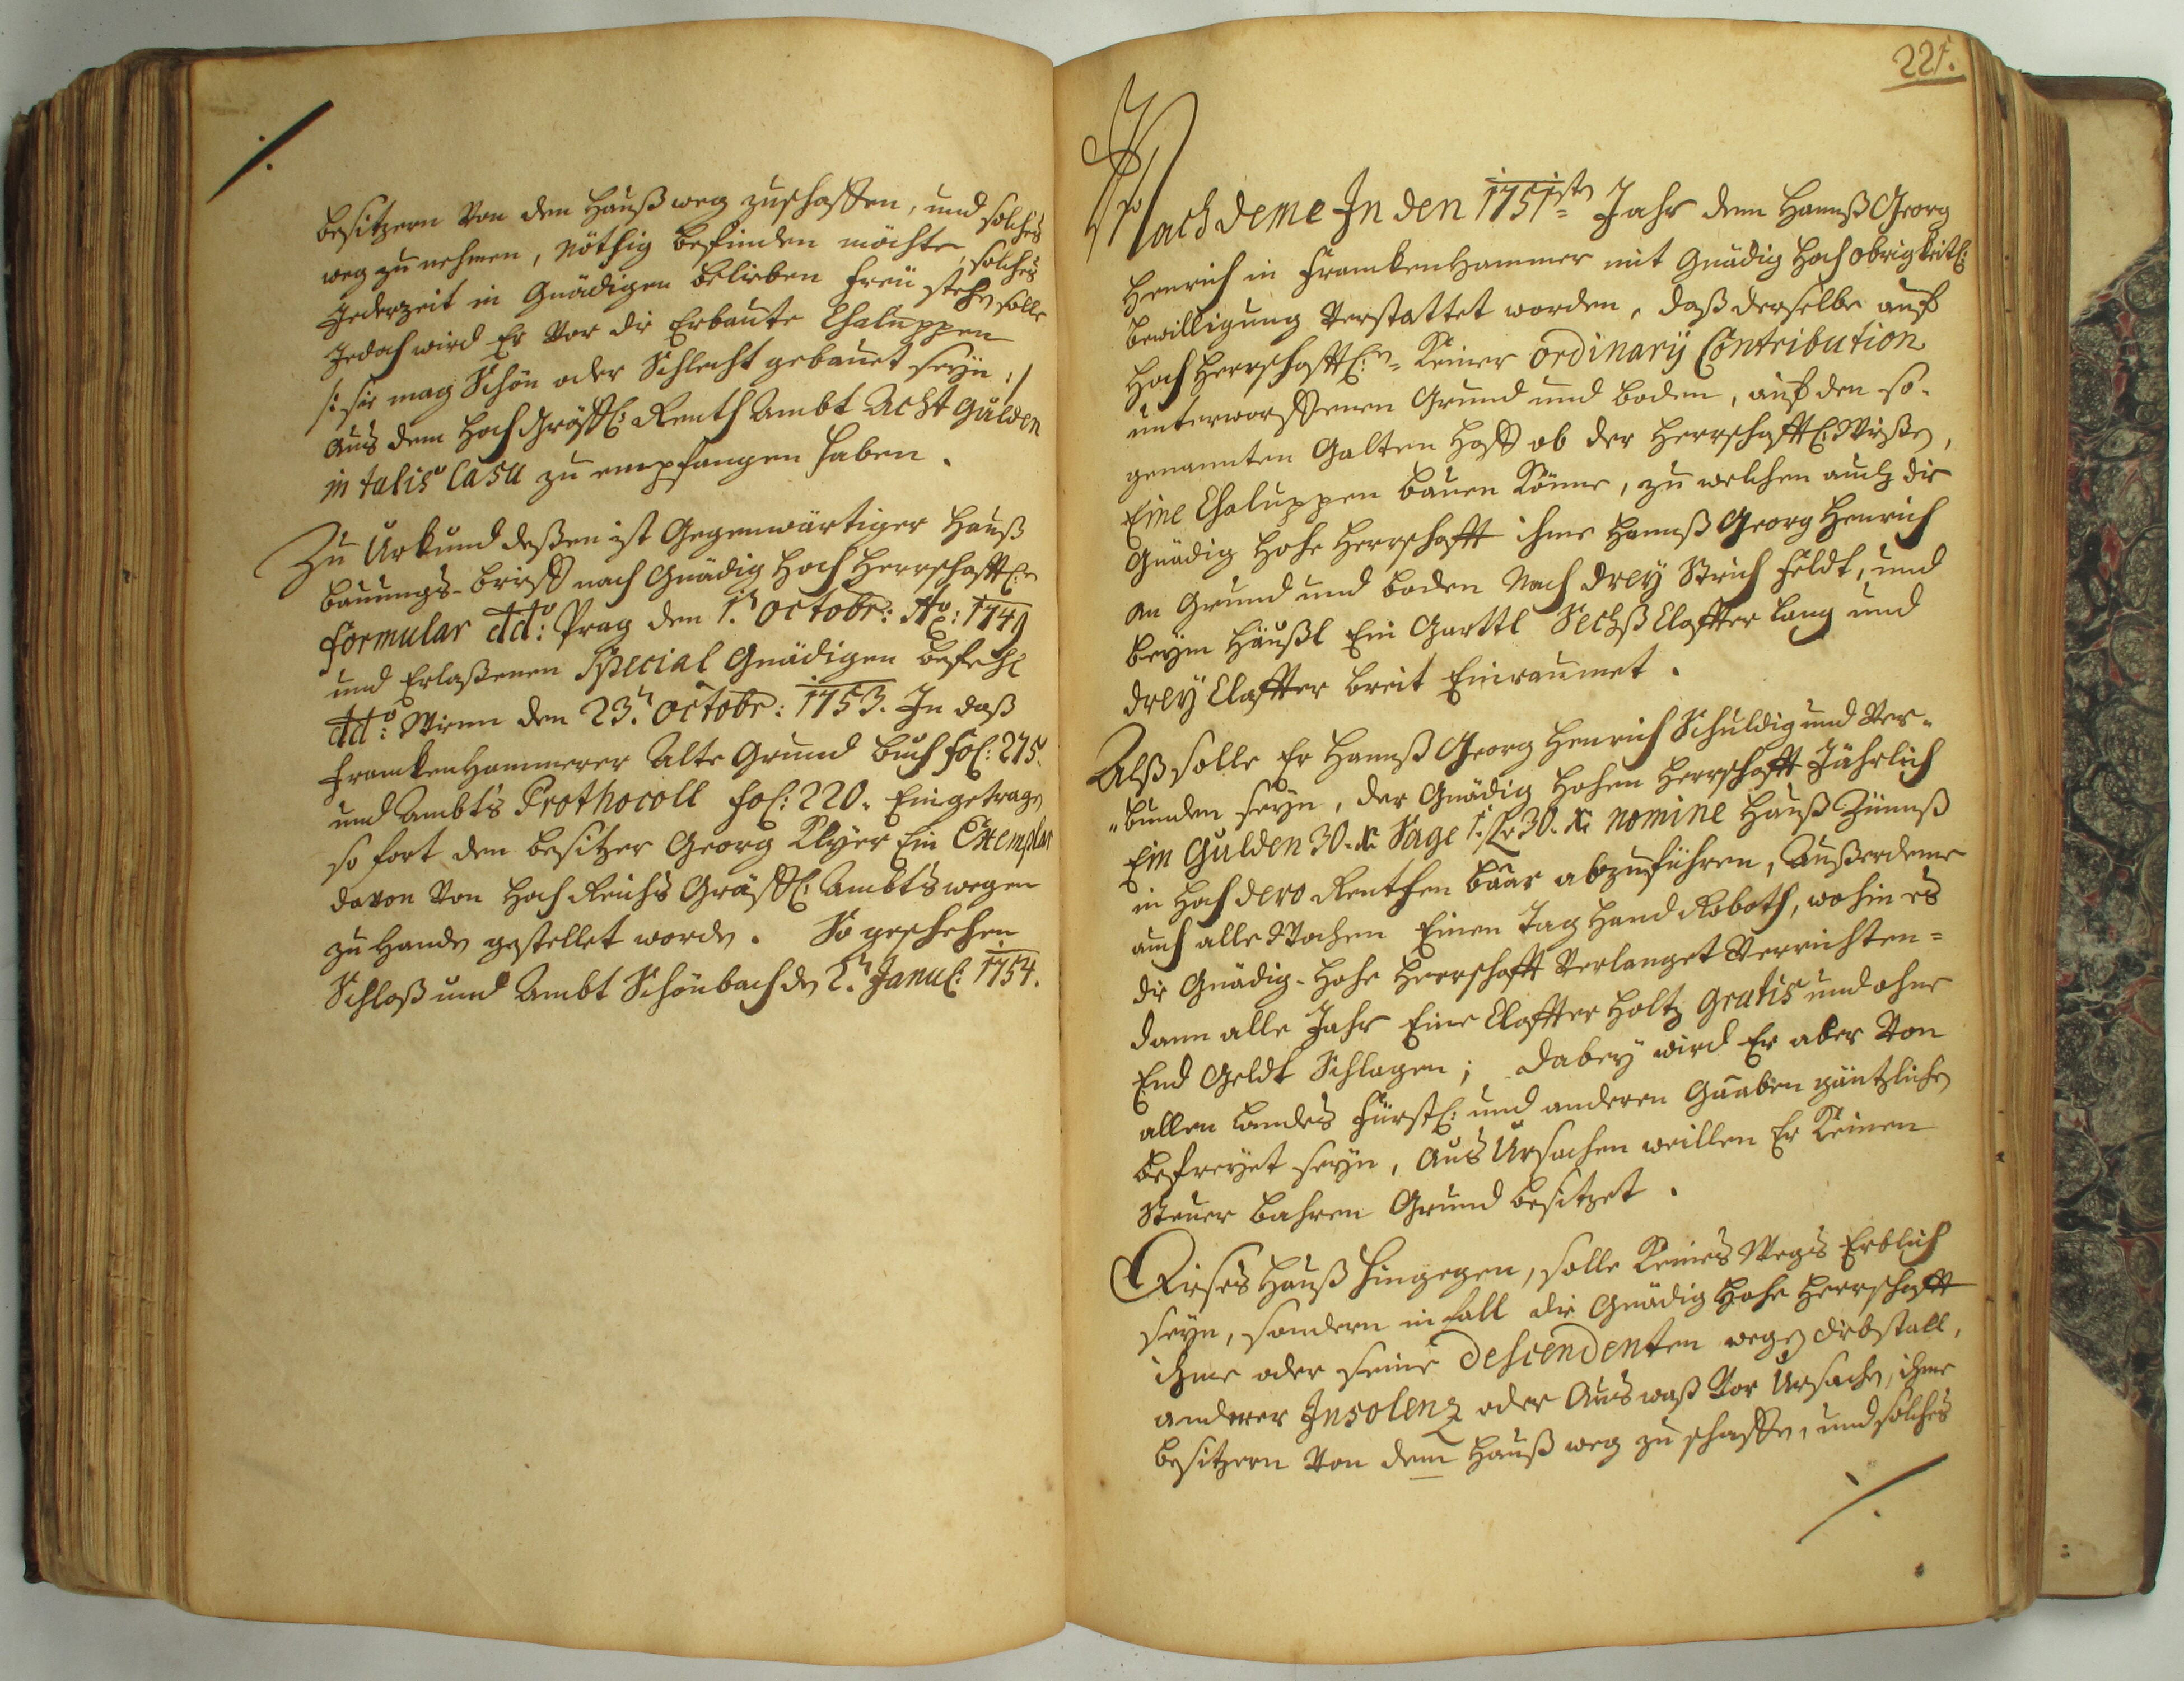 besitzern Von den Hauß weg zuschaffen, und solches
weg zu nehmen, nöthig befinden möchte, solches
Jederzeit in Gnädigen belieben freü stehen solle
Jedoch wird Er Vor die Erbaute Chaluppen
/: sie mag Schön oder Schlecht gebauet seyn :/
aus dem Hoch Gräffl: Renth Ambt Acht Gulden
in talis Casu zu empfangen haben.
Zu Urkund deßen ist Gegenwärtiger Hauß
bauungs-brieff nach Gnädig Hoch Herrschafftl:n
formular ddo: Prag den 1.t Octobr: Ao: 1749
und Erlaßenen Special Gnädigen befehl
ddo: Wienn den 23.t Octobr: 1753. In daß
Franckenhammerer Alte Grund buch fol: 275.
und Ambts Prothocoll fol: 220. Eingetragen
so fort den besitzer Georg Klyer Ein Exemplar
davon Von Hoch Reichs Gräffl: Ambts wegen
zu Handen gestellet worden. So geschehen
Schloß und Ambt Schönbach den 2.t Janu: 1754.
221.
Nach deme In den 1751sten Jahr dem Hannß Georg
Henrich in Franckenhammer mit Gnädig Hoch obrigkeitl:
bewilligung Verstattet worden, daß derselbe auf
Hoch Herrschafftl:n Keiner ordinarÿ Contribution
unterworffenen Grund und boden, auf den so-
genannten Galten Hoff ob der Herrschafftl: Wießen,
Eine Chaluppen bauen Könne, zu welchen auch die
Gnädig Hohe Herrschafft ihme Hannß Georg Henrich
an Grund und boden Nach dreÿ Strich Feldt, und
beym Häußl Ein Garttl Sechß Claffter lang und
dreÿ Claffter breit Einraumet.
Alß solle Er Hannß Georg Henrich Schuldig und Ver-
"bunden seyn, der Gnädig Hohen Herrschafft Jährlich
Ein Gulden 30. xr Sage 1. fl 30. xr nomine Hauß Zünnß
in Hoch dero Renthen baar abzuführen, Außerdeme
auch alle Wochen Einen Tag Hand Roboth, wohin es
die Gnädig-Hohe Herrschafft Verlanget Verrichten=
dann alle Jahr Eine Claffter Holtz gratis und ohne
End Geldt Schlagen; dabeÿ wird Er aber Von
allen Landes Fürstl: und anderen Gaaben gäntzlichen
befreyet seyn, Aus Ursachen weillen Er Keinen
Steuer bahren Grund besitzet.
Dieses Hauß hingegen, solle Keines Wegs Erblich
seyn, sondern in fall die Gnädig Hohe Herrschafft
ihme oder seine Descendenten wegen diebstall,
anderer Insolenz oder Aus waß Vor Ursachen, ihme
besitzern Von dem Hauß weg zu schaffen, und solches